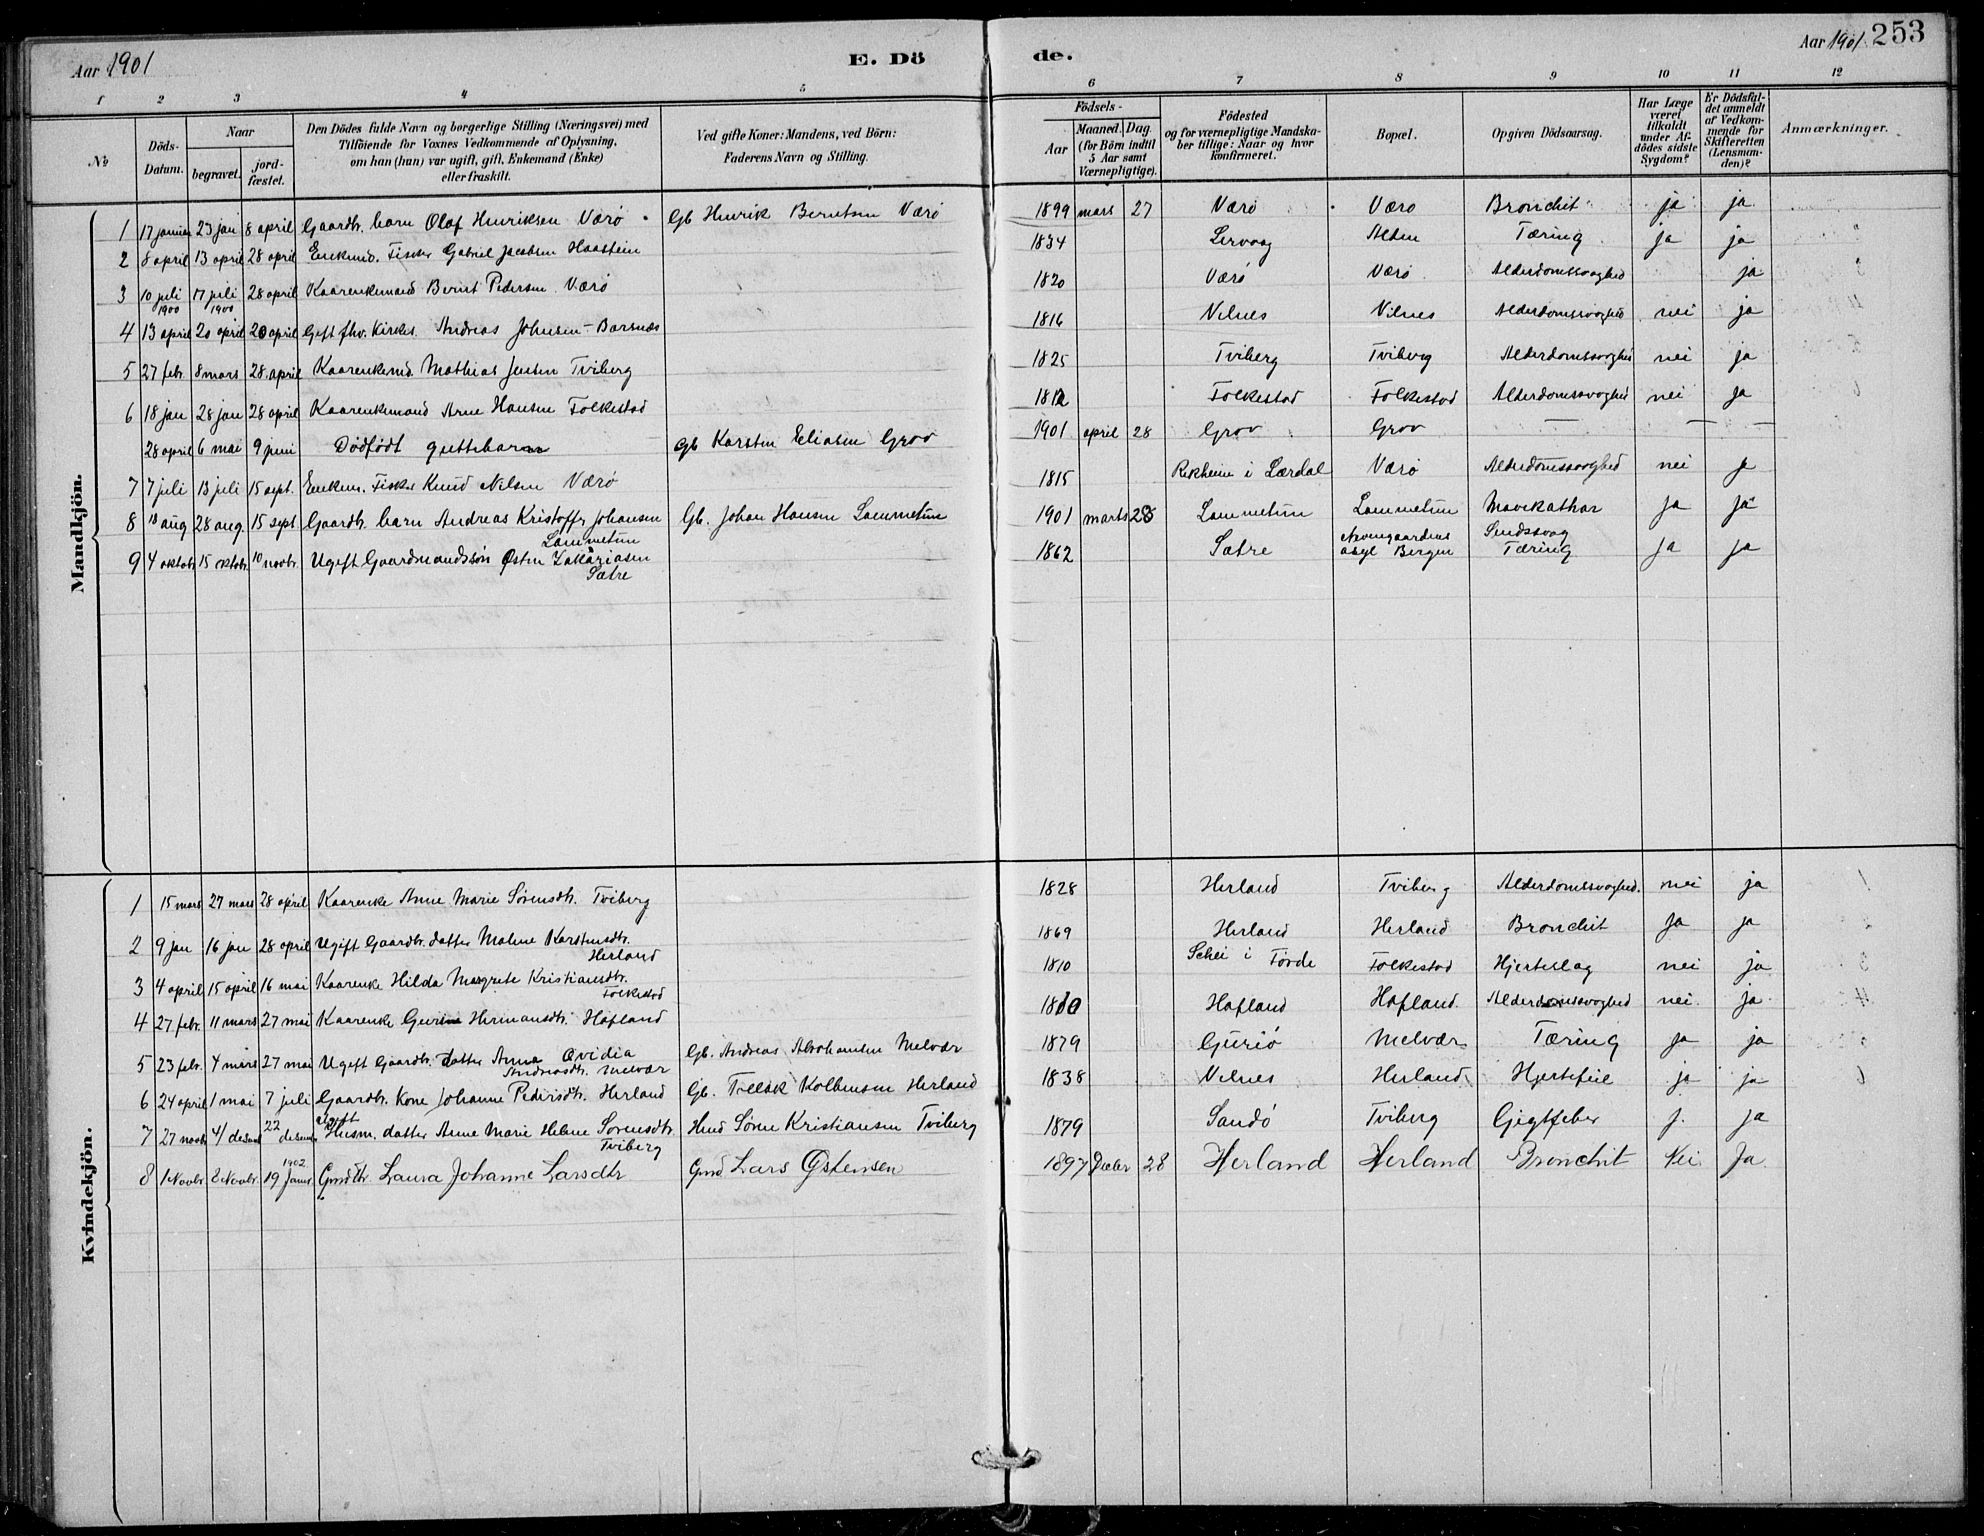 Aar 1901 E. Dö de. Aar 1901 253
1 2 3 4 5 6 7 8 9 10 11 12
No Döds-Datum. Naar begravet. jord-fæstet. Den Dödes fulde Navn og borgerlige Stilling (Næringsvei) med Tilföiende for Voxnes Vedkommende af Oplysning, om han (hun) var ugift, gift, Enkemand (Enke) eller fraskilt. Ved gifte Koner: Mandens, ved Börn: Faderens Navn og Stilling. Födsels- Aar Maaned. Dag. (for Börn indtil 5 Aar samt Værnepligtige). Födested og for værnepligtige Mandskaber tillige: Naar og hvor konfirmeret. Bopæl. Opgiven Dödsaarsag. Har Læge været tilkaldt under Afdödes sidste Sygdom? Er Dödsfaldet anmeldt af Vedkommende for Skifteretten (Lensmanden)? Anmærkninger.
Mandkjön.
1 17 januar 23 jan 8 april Gaardbr. barn Olaf Henriksen Værø Gb Henrik Berntsen Værø 1899 mars 27 Værø Værø Bronchit ja ja
2 8 april 13 april 28 april Enkemd. Fisker Gabriel Jacobsen Haastein 1834 Lervaag Alden Tæring ja ja
3 10 juli 1900 17 juli 1900 28 april Kaarenkemand Bernt Pedersen Værø 1820 Værø Værø Alderdomssvaghed ja
4 13 april 20 april 20 april Gift fhv. Kirkes. Andreas Johnsen-Barsnæs 1816 Vilnes Vilnes Alderdomssvaghed nei ja
5 27 febr. 8 mars 28 april Kaarenkemd. Mathias Jensen Tviberg 1825 Tviberg Tviberg Alderdomssvaghed nei ja
6 18 jan 28 jan 28 april Kaarenkemand Arne Hansen Folkestad 1812 Folkestad Folkestad Alderdomssvaghed nei ja
28 april 6 mai 9 juni Dødfødt guttebarn gb Karsten Eliasen Grov 1901 april 28 Grov Grov — — —
7 7 juli 13 juli 15 sept. Enkem. Fisker Knud Nilsen Værø 1815 Rikheim i Lærdal Værø Alderdomssvaghed nei ja
8 18 aug 28 aug. 15 sept. Gaardb. barn Andreas Kristoffr Johansen Lammetun Gb. Johan Hansen Lammetun 1901 marts 28 Lammetun Lammetun Mavekathar ja ja
9 4 oktobr 15 oktobr. 10 novbr. Ugift Gaardmandssøn Østen Zakariasen Sætre 1862 Sætre asyl Bergen Sindssvag Tæring ja ja
Kvindekjön.
1 15 mars 27 mars 28 april Kaarenke Anne Marie Sørensdtr. Tviberg 1828 Herland Tviberg Alderdomssvaghed. nei ja
2 9 jan 16 jan 28 april Ugift Gaardbr. datter Malene Karstensdtr. Herland 1869 Herland Herland Bronchit ja ja
3 4 april 15 april 16 mai Kaarenke Hilda Margrete Kristiansdtr. Folkestad 1810 Schei i Førde Folkestad Hjerteslag nei ja
4 27 febr. 11 mars 27 mai Kaarenke Gurine Hermansdtr. Hofland 1810 Hofland Hofland Alderdomssvaghed nei ja
5 23 febr. 4 mars 27 mai Ugift Gaardbr. datter Anna Ovidia Andreasdtr. Melvær Gb. Andreas Abrahamsen Melvær 1879 Guriø Melvær Tæring ja ja
6 24 april 1 mai 7 juli Gaardbr. Kone Johanne Pedersdtr. Herland Gb. Tellak Kolbensen Herland 1838 Vilnes Herland Hjertefeil ja ja
7 27 novbr 4/ desemb 22 desemb Ugift Husm. datter Anne Marie Helene Sørensdtr. Tviberg Hmd Søren Kristiansen Tviberg 1879 Sandø Tviberg Gigtfeber j. ja
8 1 Novbr 8 Novbr. 19 Januar 1902 Gmdtr. Laura Johanne Larsdtr Gmd Lars Østensen 1897 Decbr 28 Herland Herland Bronchit Nei Ja